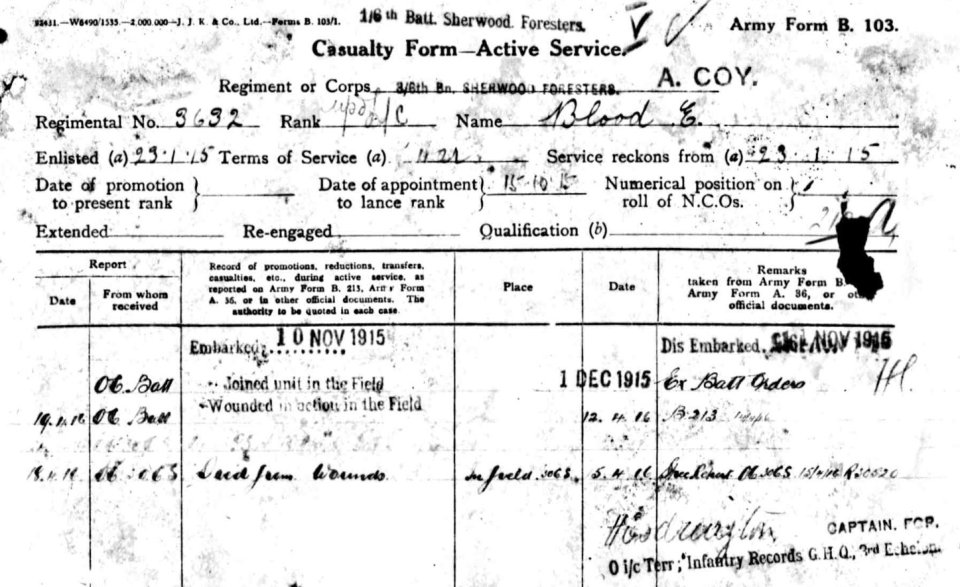 93431.—W8490/1535.—2,000,000—J. J. K. & Co., Ltd.—Forms B. 103/1. 1/6th Batt. Sherwood Foresters. Army Form B. 103.
Casualty Form—Active Service.
Regiment or Corps 3/6th Bn. SHERWOOD FORESTERS. A. COY.
Regimental No. 3632 Rank L/C Name Blood E.
Enlisted (a) 23.1.15 Terms of Service (a) Service reckons from (a) 23.1.15
Date of promotion to present rank Date of appointment to lance rank 15.10.15 Numerical position on roll of N.C.Os.
Extended Re-engaged Qualification (b)
Report
Date
From whom received
Record of promotions, reductions, transfers,
casualties, etc., during active service, as
reported on Army Form B. 213, Army Form
A. 36, or in other official documents. The
authority to be quoted in each case.
Place
Date
Remarks
taken from Army Form B.
Army Form A. 36, or
official documents.
Embarked 10 NOV 1915 Dis Embarked. NOV 1915
OC Batt Joined unit in the Field 1 DEC 1915 Ex Batt Orders
19.4.16 OC Batt Wounded in action in the Field 12.4.16 B213
OC Died from Wounds In field 5.4.16
CAPTAIN. FOR.
O i/c Terr; Infantry Records G.H.Q., 3rd Echelon.